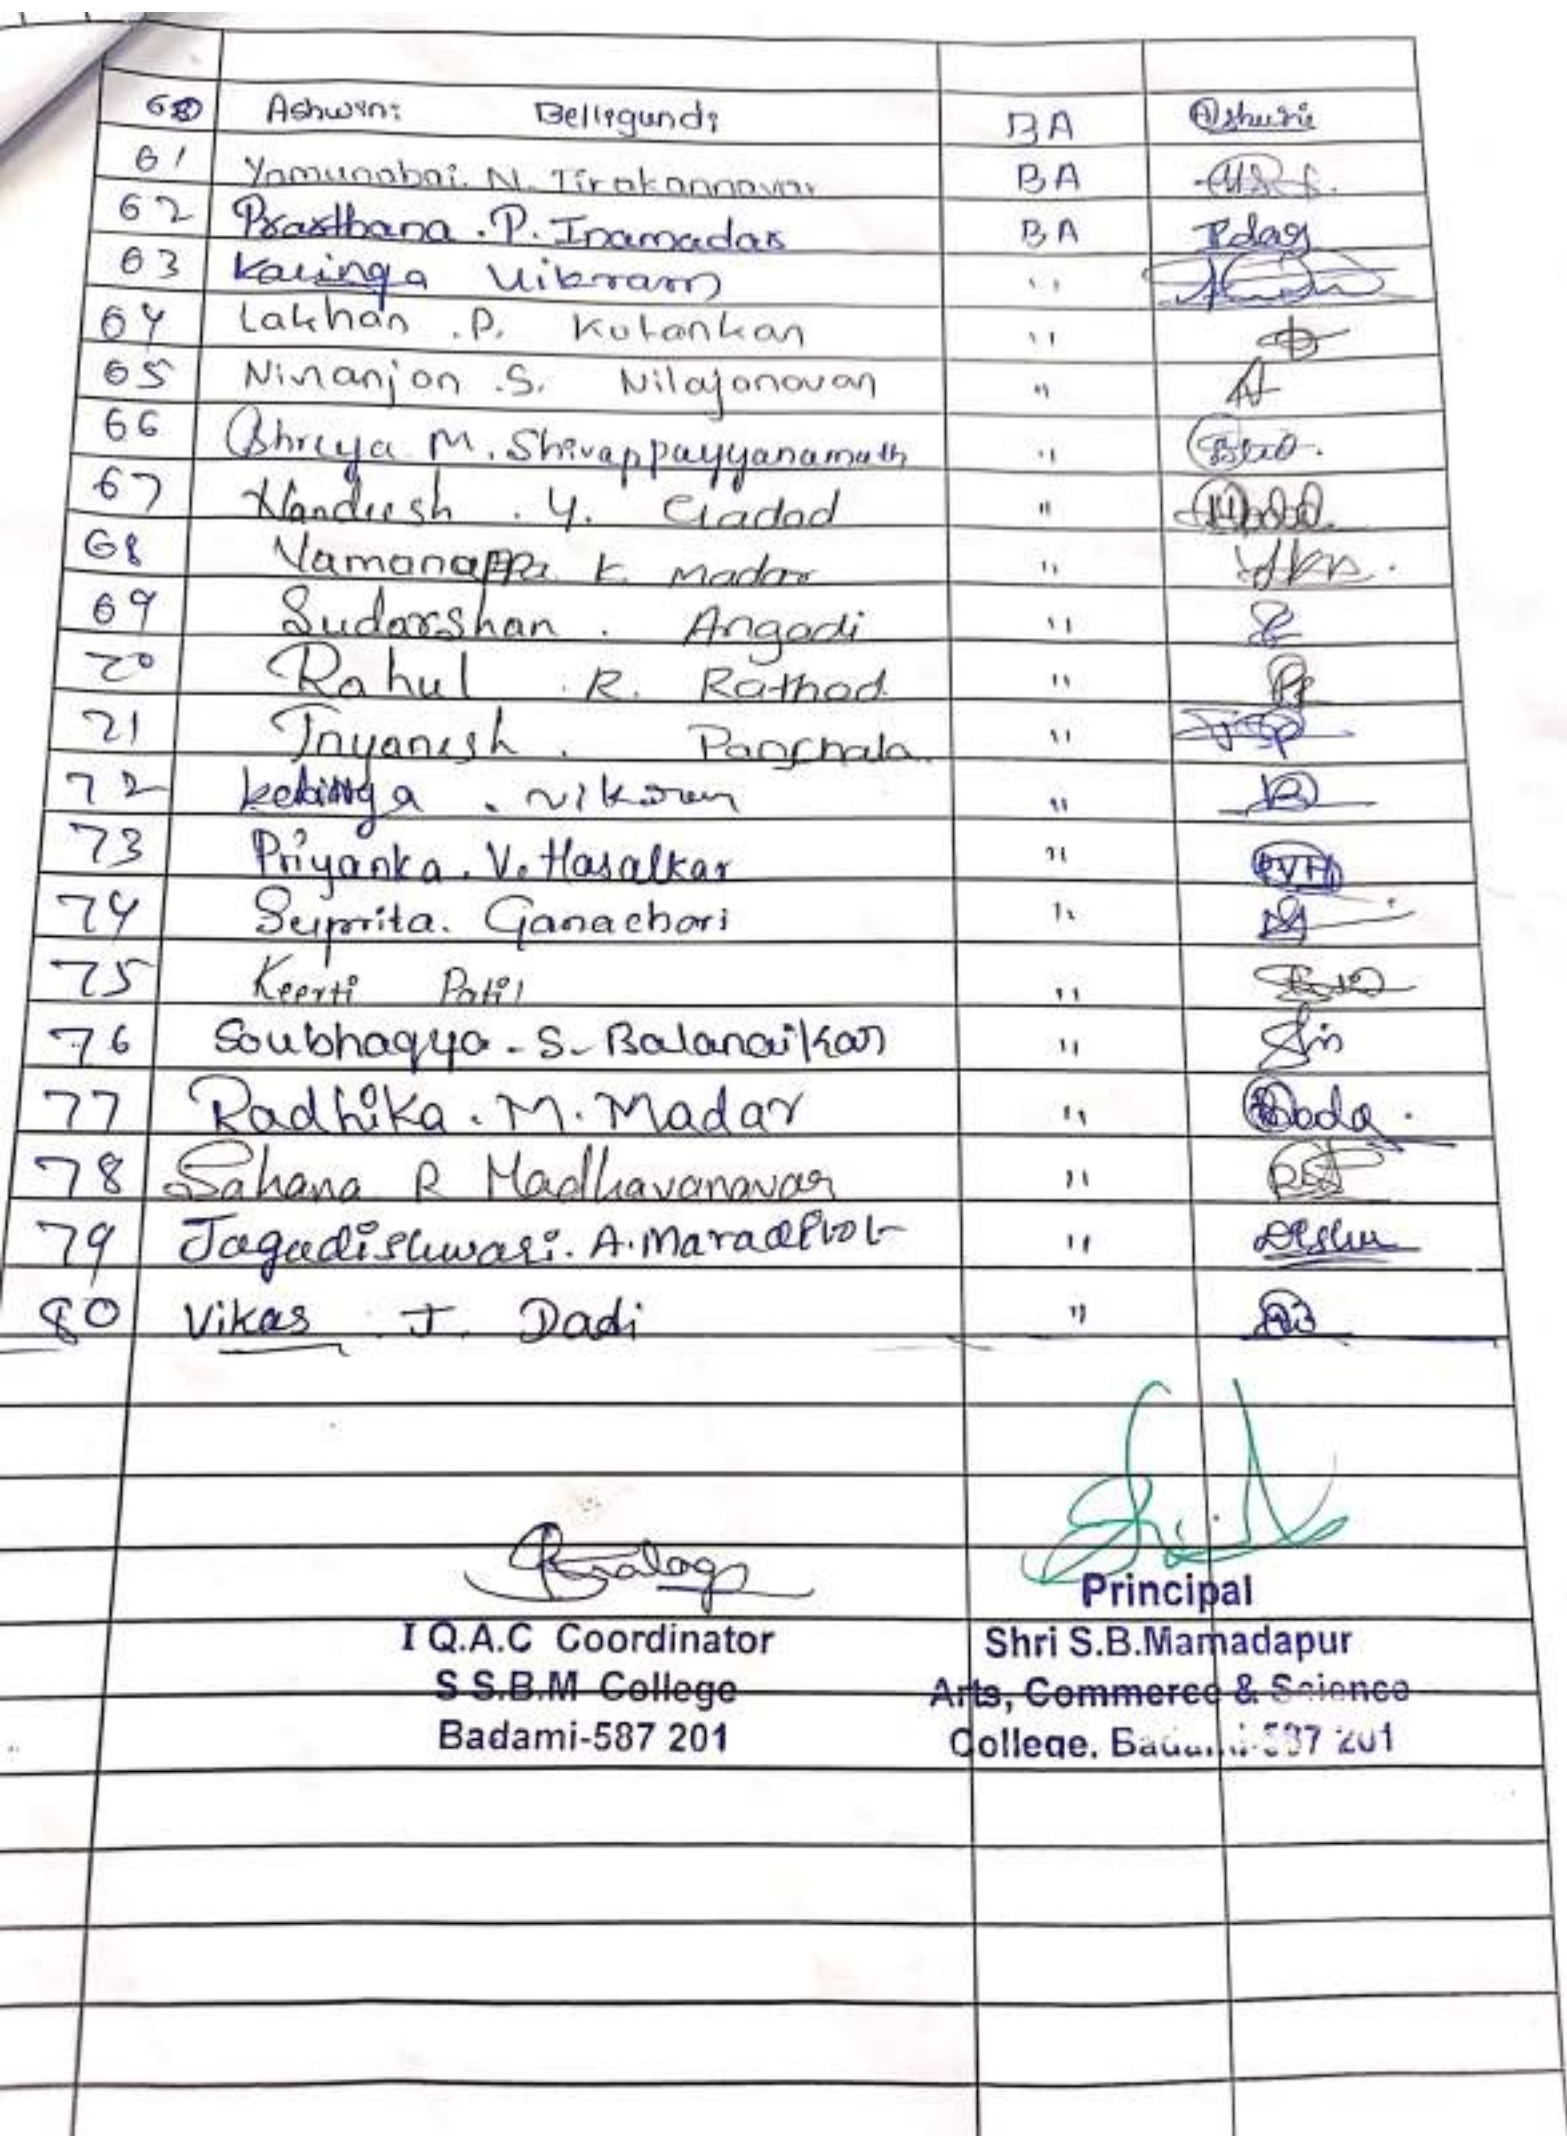 60 Ashwini Belligundi BA Ashwini
61 Yamunabai. N. Tirakannavar BA
62 Prarthana . P. Inamadar BA
63 Kalinga Vikram "
64 Lakhan .P. Kutankar "
65 Niranjan .S. Nilajanavar "
66 Shreya M. Shivappayyanamath "
67 Nandeesh . Y. Gadad "
68 Yamanappa K Madar "
69 Sudarshan . Angadi "
70 Rahul . R. Rathod "
71 Jnyanesh . Panchala "
72 . Vikram "
73 Priyanka . V. Hasalkar " PVH
74 Suprita. Ganachari "
75 Keerti Patil "
76 Soubhagya - S- Balanaikar "
77 Radhika . M. Madar "
78 Sahana R Madhavanavar "
79 Jagadishwari. A. "
80 Vikas J. Dadi "
Principal
I Q.A.C Coordinator Shri S.B.Mamadapur
S S.B.M College Arts, Commerce & Science
Badami-587 201 College, Badami-587 201